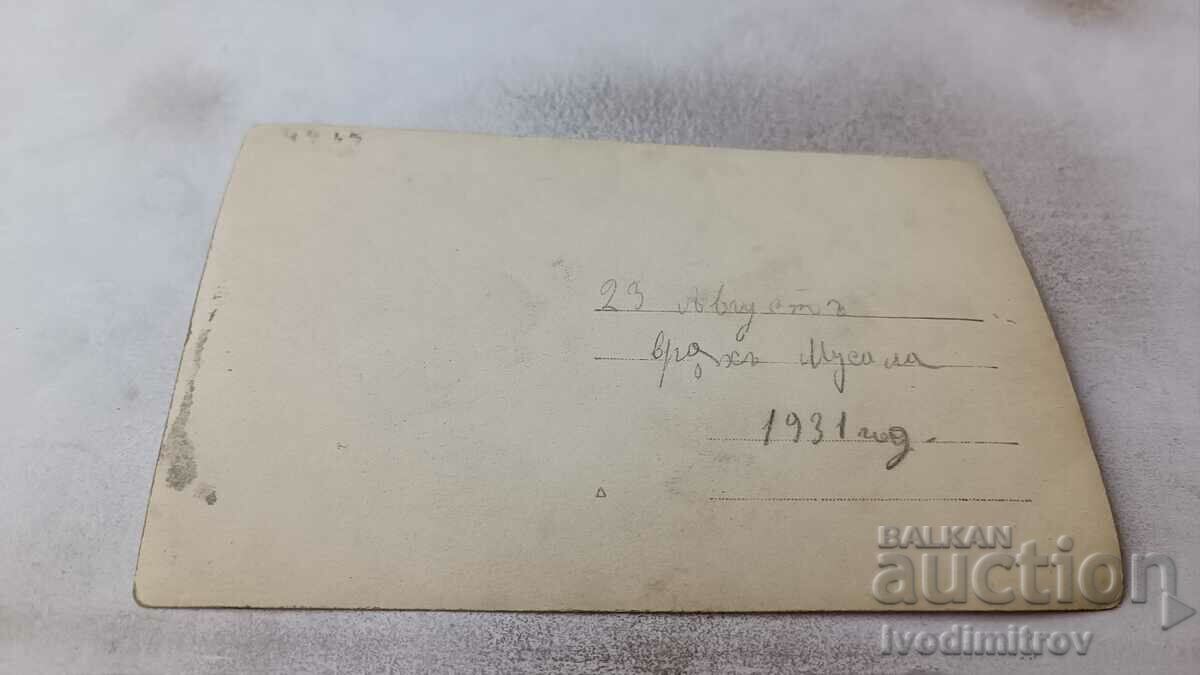 23 Августъ
връхъ Мусала
1931 год.
BALKAN
auction
Ivodimitrov